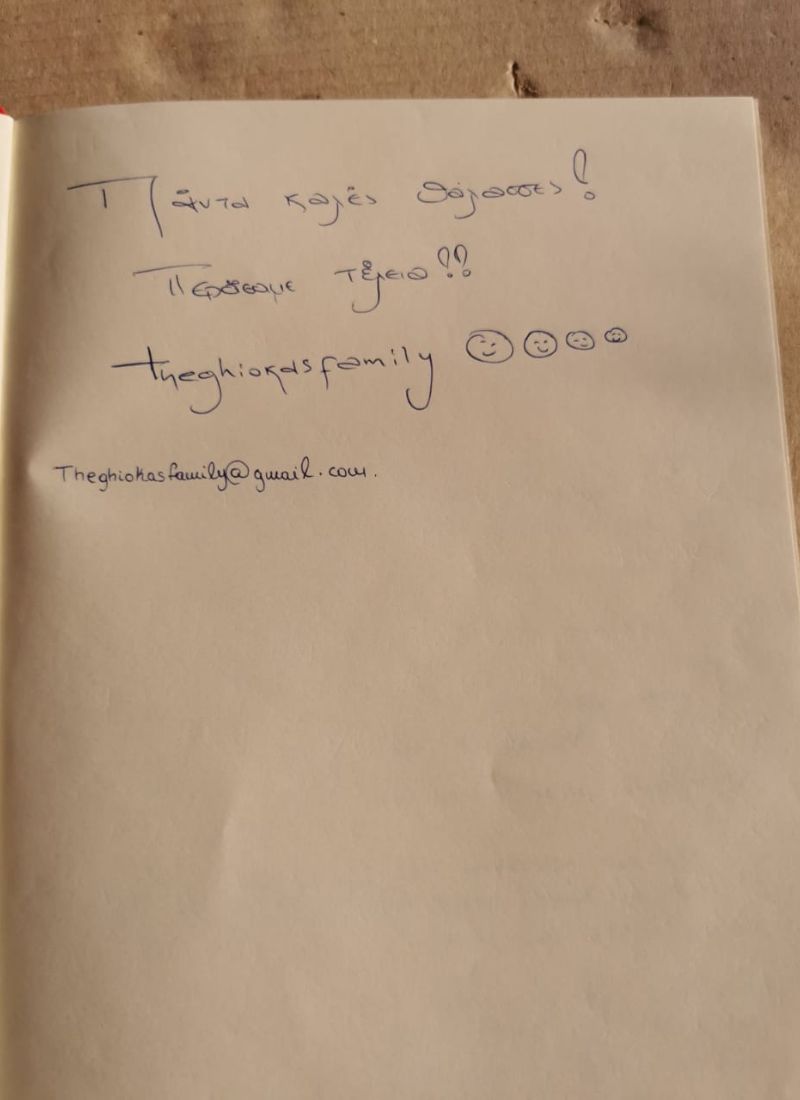 Πάντα καλές θάλασσες!
Περάσαμε τέλεια!!
theghiokasfamily
Theghiokasfamily@gmail.com.